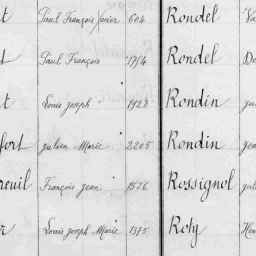 t Paul François Xavier 604 Rondel
t Paul François 1754 Rondel
t Louis joseph 1928 Rondin
fort julien Marie 2205 Rondin
reuil François jean 1576 Rossignol
r Louis joseph Marie 1375 Roty